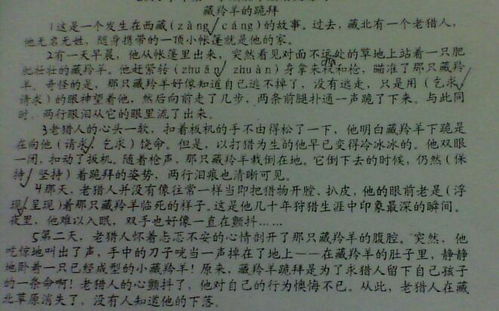 藏羚羊的跪拜
1这是一个发生在西藏(zàng / cáng)的故事。过去，藏北有一个老猎人，
他无名无姓，随身携带的一顶小帐篷就是他的家。
2有一天早晨，他从帐篷里出来，突然看见对面不远处的草地上站着一只肥
肥壮壮的藏羚羊。他赶紧转(zhuǎn / zhuàn)身拿来杈和枪，瞄准了那只藏羚
羊。奇怪的是，那只藏羚羊好像知道自己逃不掉了，没有逃走，只是用(乞求
请求)的眼神望着他，然后向前走了几步，两条前腿扑通一声跪了下来。与此同
时，两行眼泪从它的眼里流了出来。
3老猎人的心头一软，扣着扳机的手不由得松了一下，他明白藏羚羊下跪是
在向他(请求 乞求)饶命。但是，以打猎为生的他早已变得冷冰冰的。他双眼
一闭，扣动了扳机。随着枪声，那只藏羚羊栽倒在地。它倒下去的时候，仍然(保
持 坚持)着跪拜的姿势，两行泪痕也清晰可见。
4那天，老猎人并没有像往常一样当即把猎物开膛、扒皮，他的眼前老是(浮
现 呈现)着那只藏羚羊临死的样子。这是他几十年狩猎生涯中印象最深的瞬间。
夜里，他难以入眠，双手也好像一直在颤抖……
5第二天，老猎人怀着忐忑不安的心情剖开了那只藏羚羊的腹腔。突然，他
吃惊地叫出了声，手中的刀子咣当一声掉在了地上——在藏羚羊的肚子里，静静
地卧着一只已经成型的小藏羚羊！原来，藏羚羊跪拜是为了求猎人留下自己孩子
的一条命啊！老猎人的心颤抖了，他对自己的行为懊悔不已。从此，老猎人在藏
北草原消失了，没有人知道他的下落。